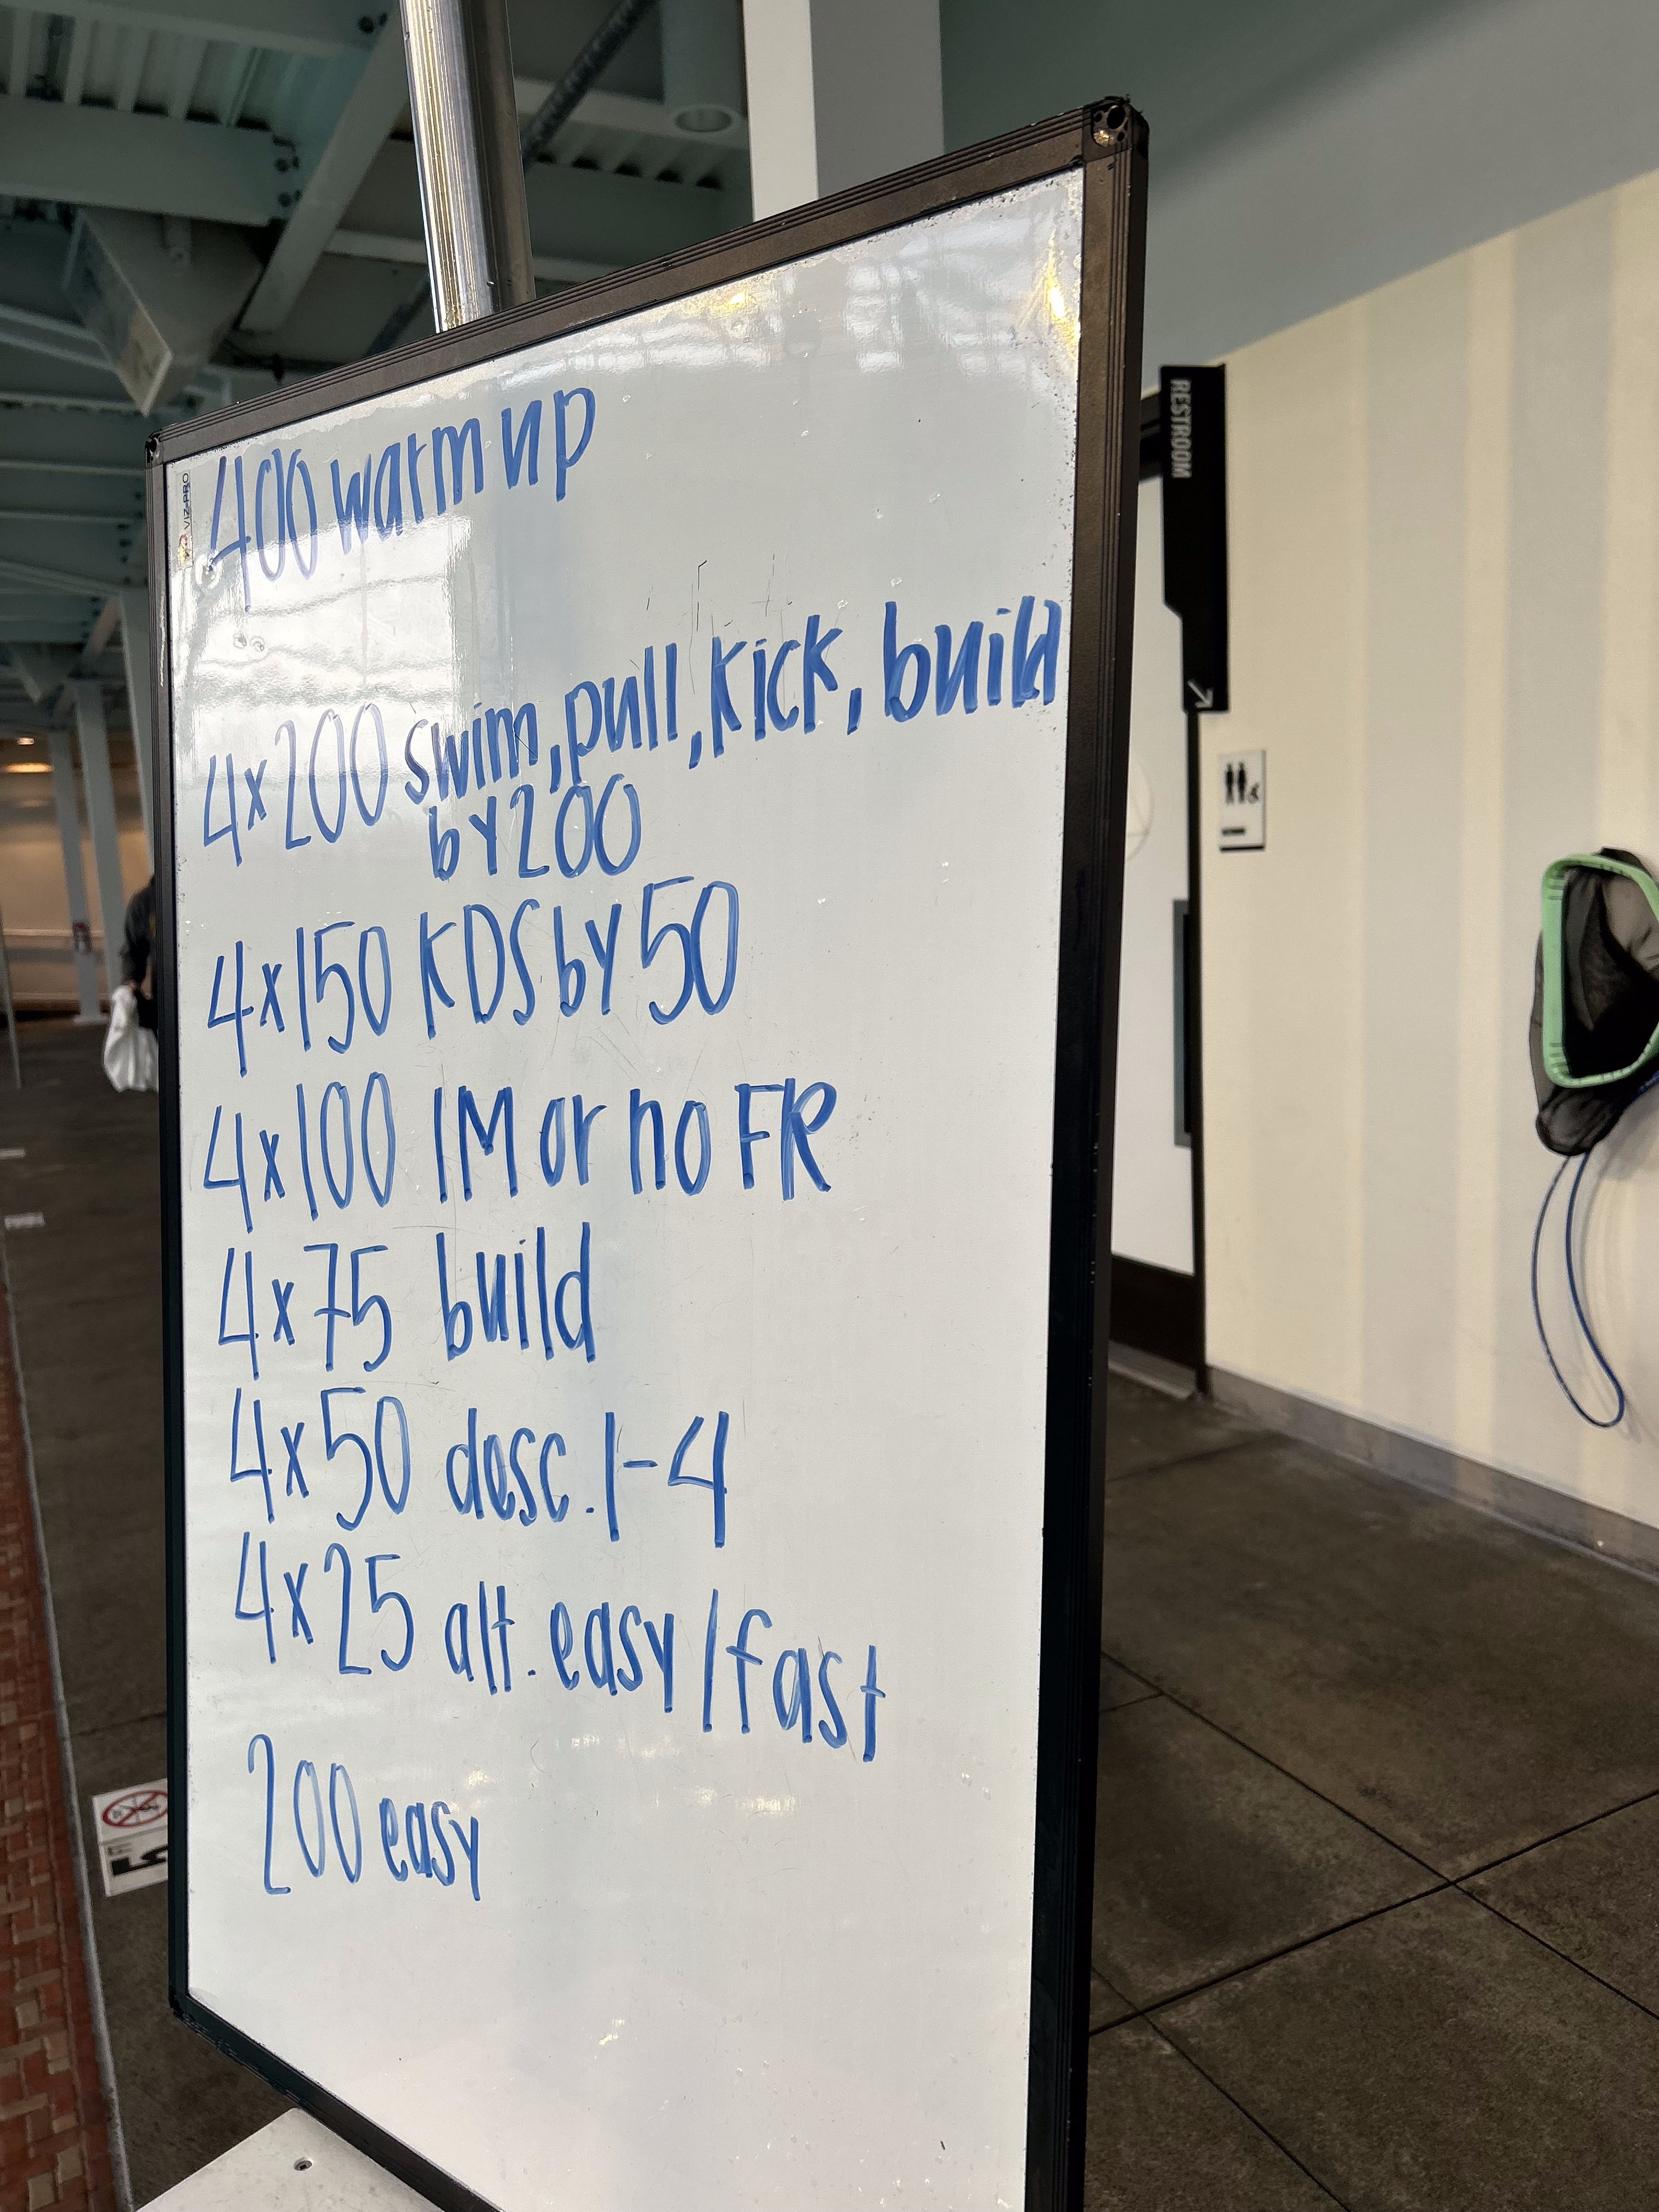 VIZ-PRO
400 warm up
4x200 swim, pull, kick, build
by 200
4x150 KDS by 50
4x100 IM or no FR
4x75 build
4x50 desc. 1-4
4x25 alt. easy/fast
200 easy
RESTROOM
5